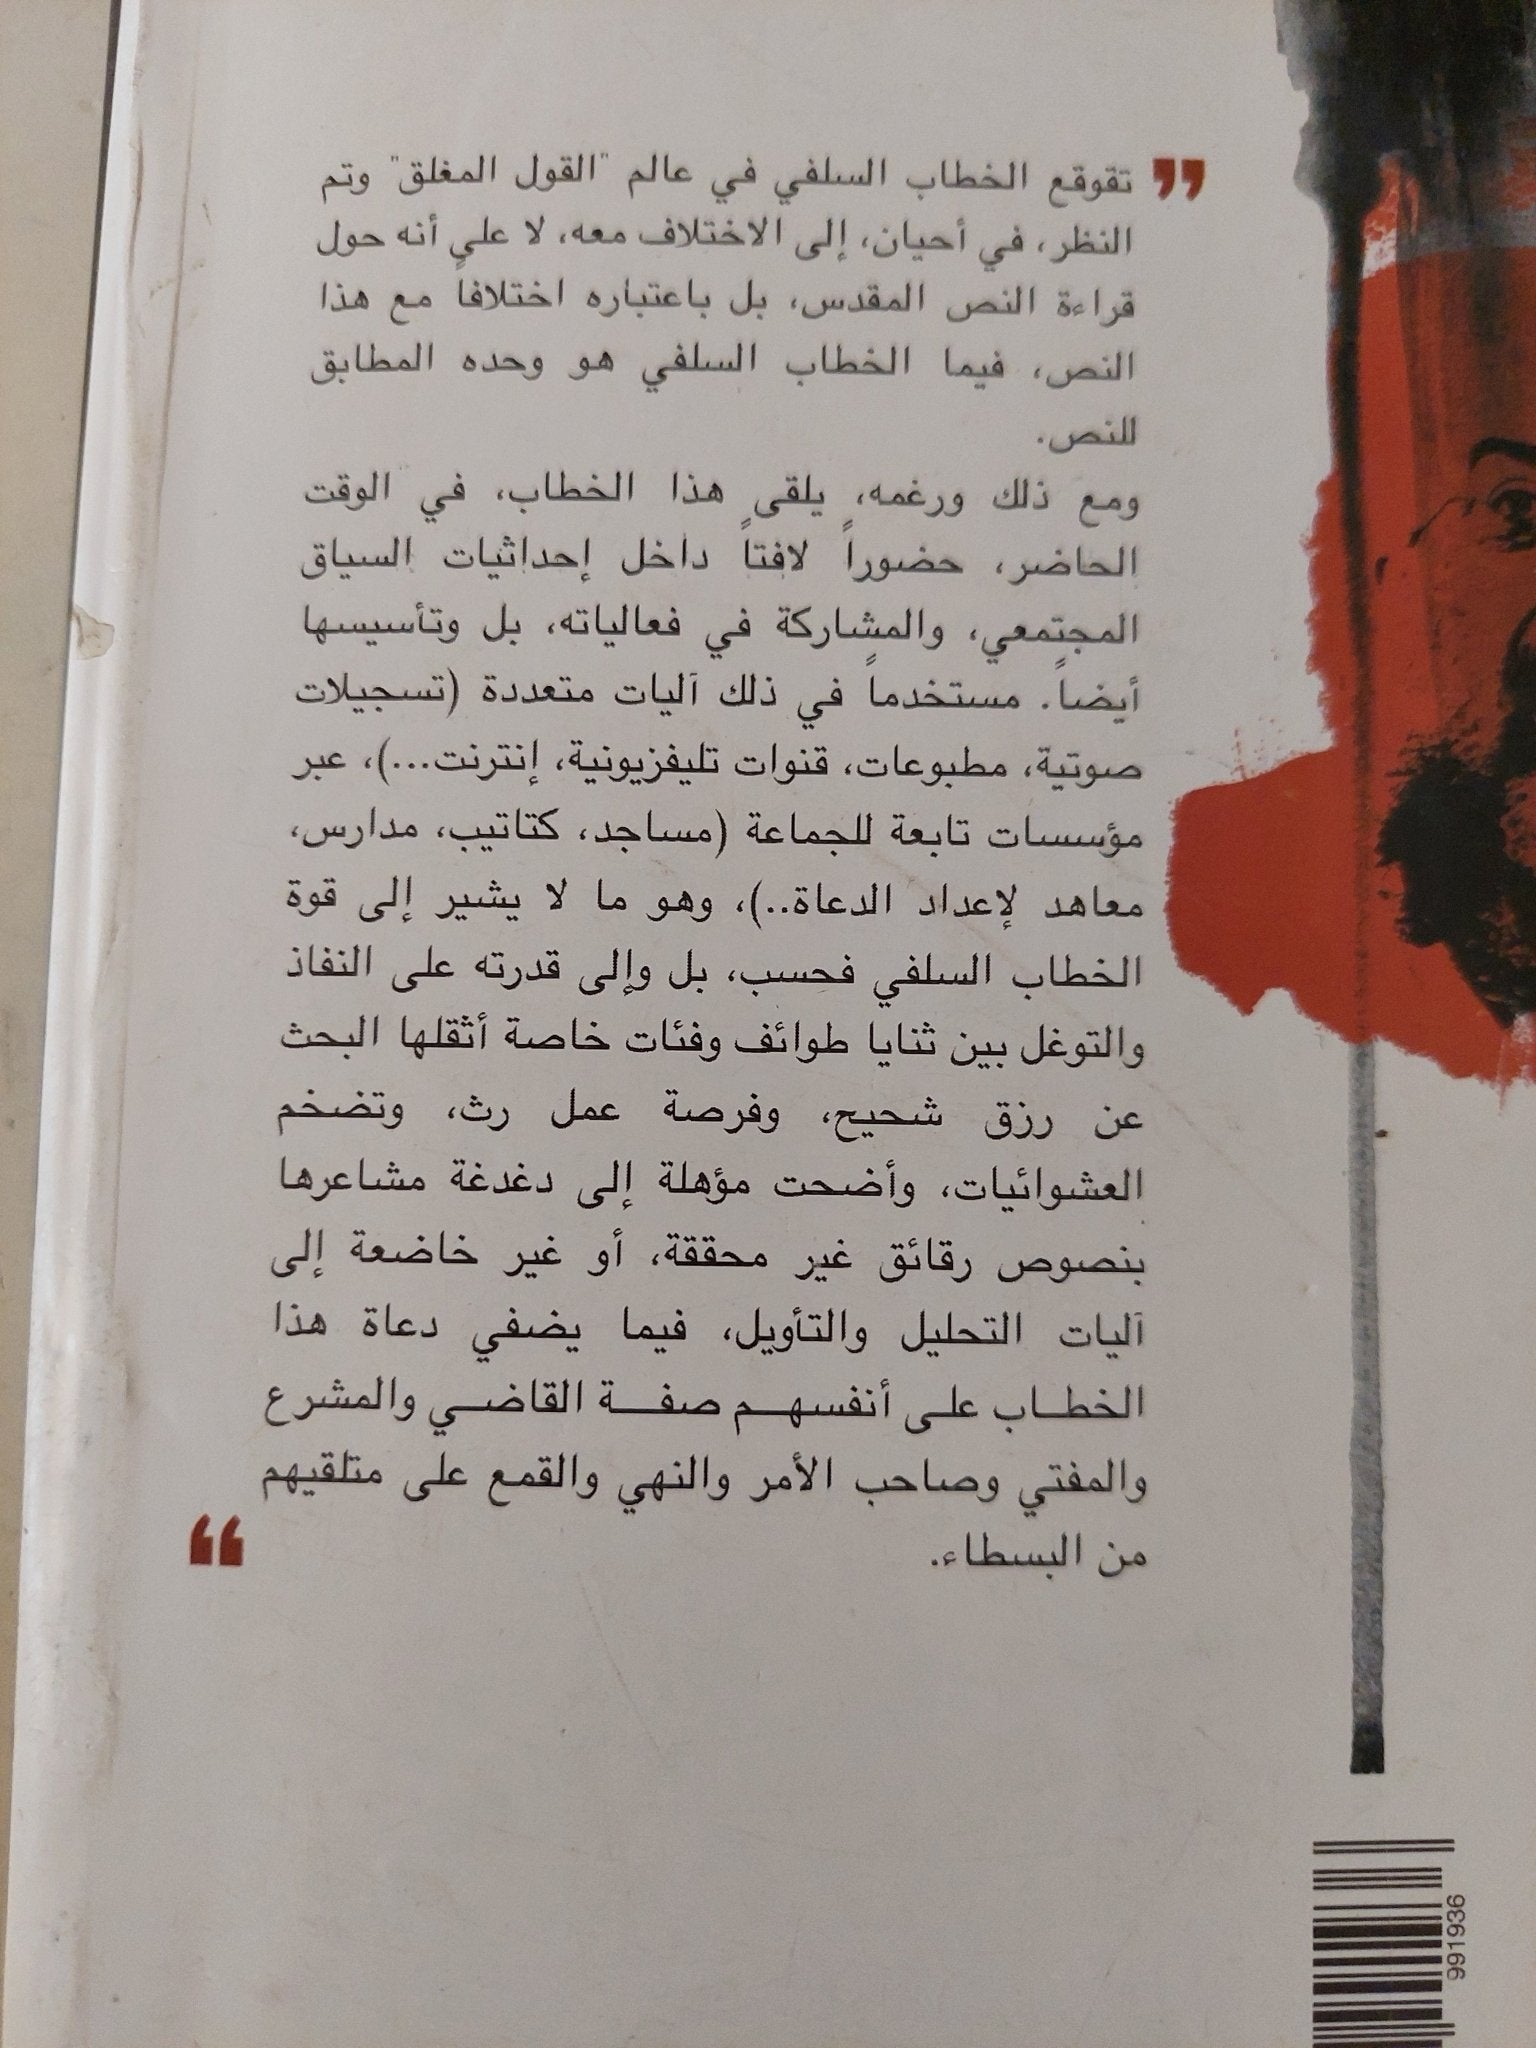 تقوقع الخطاب السلفي في عالم "القول المغلق" وتم
النظر، في أحيان، إلى الاختلاف معه، لا على أنه حول
قراءة النص المقدس، بل باعتباره اختلافاً مع هذا
النص، فيما الخطاب السلفي هو وحده المطابق
للنص.
ومع ذلك ورغمه، يلقى هذا الخطاب، في الوقت
الحاضر، حضوراً لافتاً داخل إحداثيات السياق
المجتمعي، والمشاركة في فعالياته، بل وتأسيسها
أيضاً. مستخدماً في ذلك آليات متعددة (تسجيلات
صوتية، مطبوعات، قنوات تليفزيونية، إنترنت...)، عبر
مؤسسات تابعة للجماعة (مساجد، كتاتيب، مدارس،
معاهد لإعداد الدعاة..)، وهو ما لا يشير إلى قوة
الخطاب السلفي فحسب، بل وإلى قدرته على النفاذ
والتوغل بين ثنايا طوائف وفئات خاصة أثقلها البحث
عن رزق شحيح، وفرصة عمل رث، وتضخم
العشوائيات، وأضحت مؤهلة إلى دغدغة مشاعرها
بنصوص رقائق غير محققة، أو غير خاضعة إلى
آليات التحليل والتأويل، فيما يضفي دعاة هذا
الخطـاب علـى أنفسهـم صفـة القاضـي والمشرع
والمفتي وصاحب الأمر والنهي والقمع على متلقيهم
من البسطاء.
991936